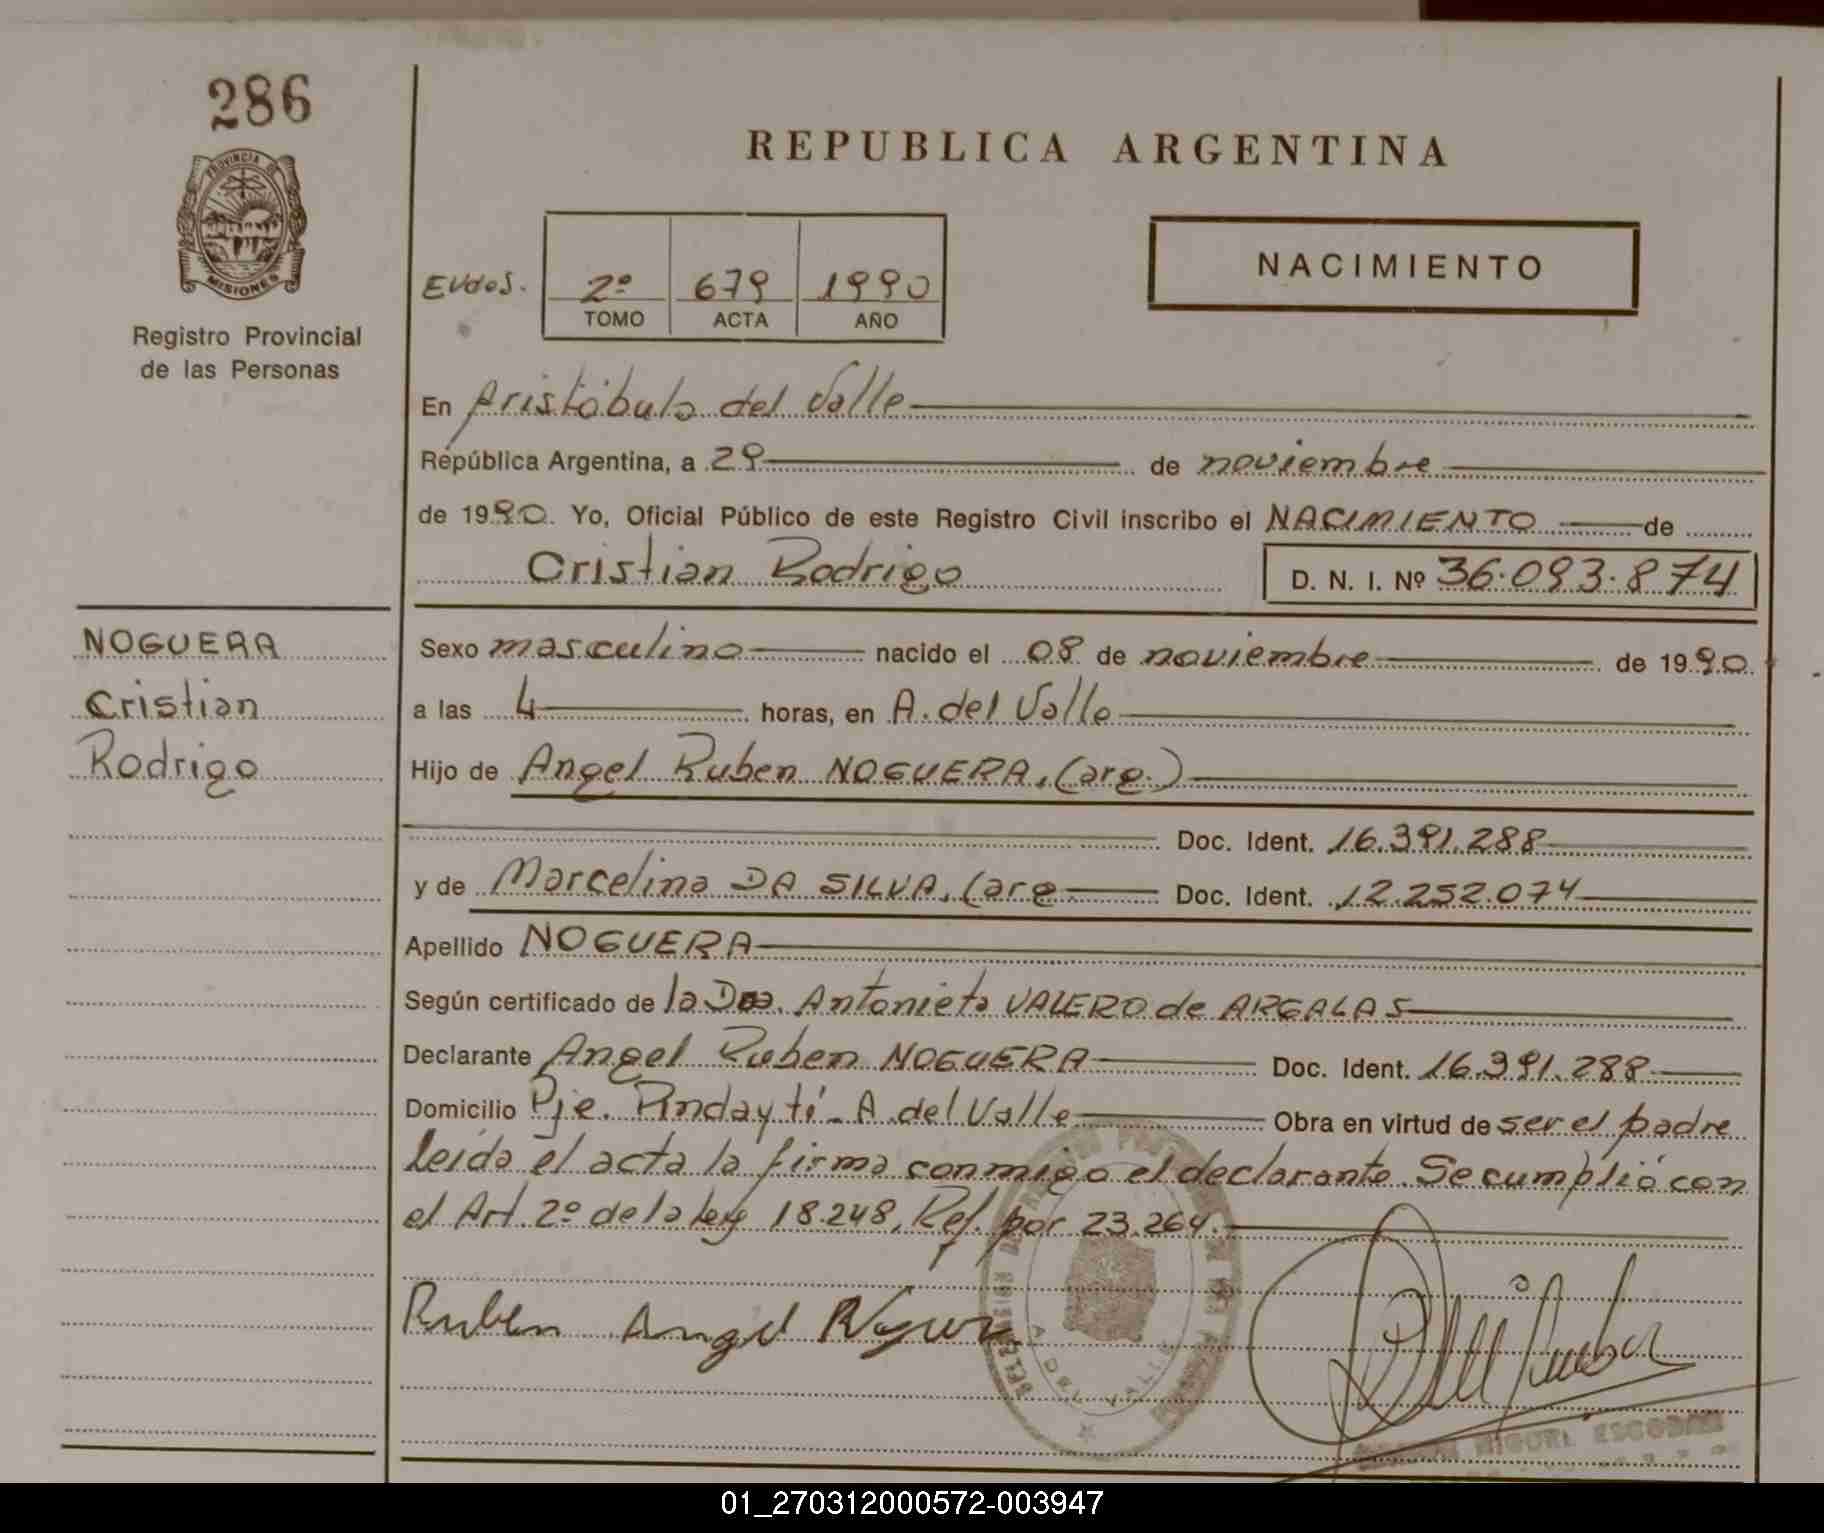 286
PROVINCIA DE
MISIONES
Registro Provincial
de las Personas
REPUBLICA ARGENTINA
EVdos.
2º 679 1990
TOMO ACTA AÑO
NACIMIENTO
En Aristóbulo del Valle
República Argentina, a 29 de noviembre
de 1990. Yo, Oficial Público de este Registro Civil inscribo el NACIMIENTO de
Cristian Rodrigo D. N. I. Nº 36.093.874
NOGUERA
Cristian
Rodrigo
Sexo masculino nacido el 08 de noviembre de 1990
a las 4 horas, en A. del Valle
Hijo de Angel Ruben NOGUERA, (arg.)
Doc. Ident. 16.391.288
y de Marcelina DA SILVA, (arg Doc. Ident. 12.252.074
Apellido NOGUERA
Según certificado de la Dra. Antonieta VALERO de ARGALAS
Declarante Angel Ruben NOGUERA Doc. Ident. 16.391.288
Domicilio Pje. Pindaytí - A. del Valle Obra en virtud de ser el padre
leída el acta la firma conmigo el declarante. Se cumplió con
el Art. 2º de la ley 18.248, Ref. por 23.264.
Ruben Angel
A. DEL VALLE
MIGUEL ESCOBAR
01_270312000572-003947